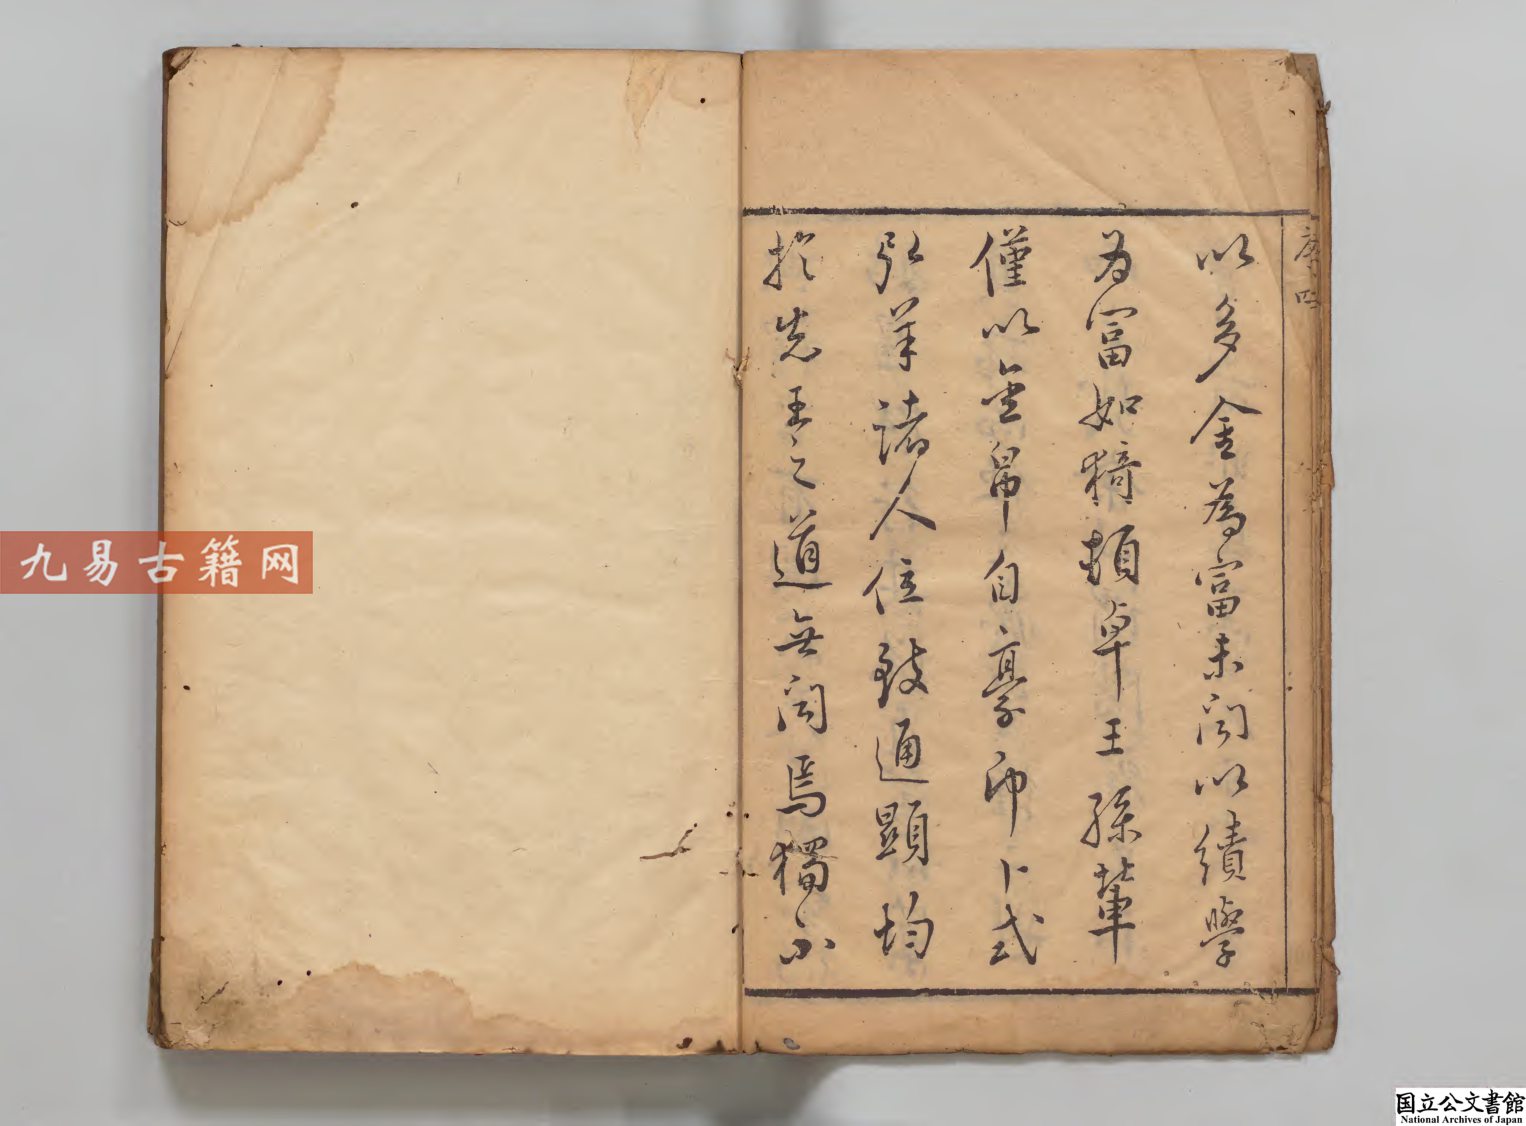 序 四
以多金為富未闻以績學
为富如猗頓卓王孫輩
僅以金帛自豪即卜式
弘羊諸人位致通顯均
於先王之道無闻焉獨不
九易古籍网
国立公文書館
National Archives of Japan